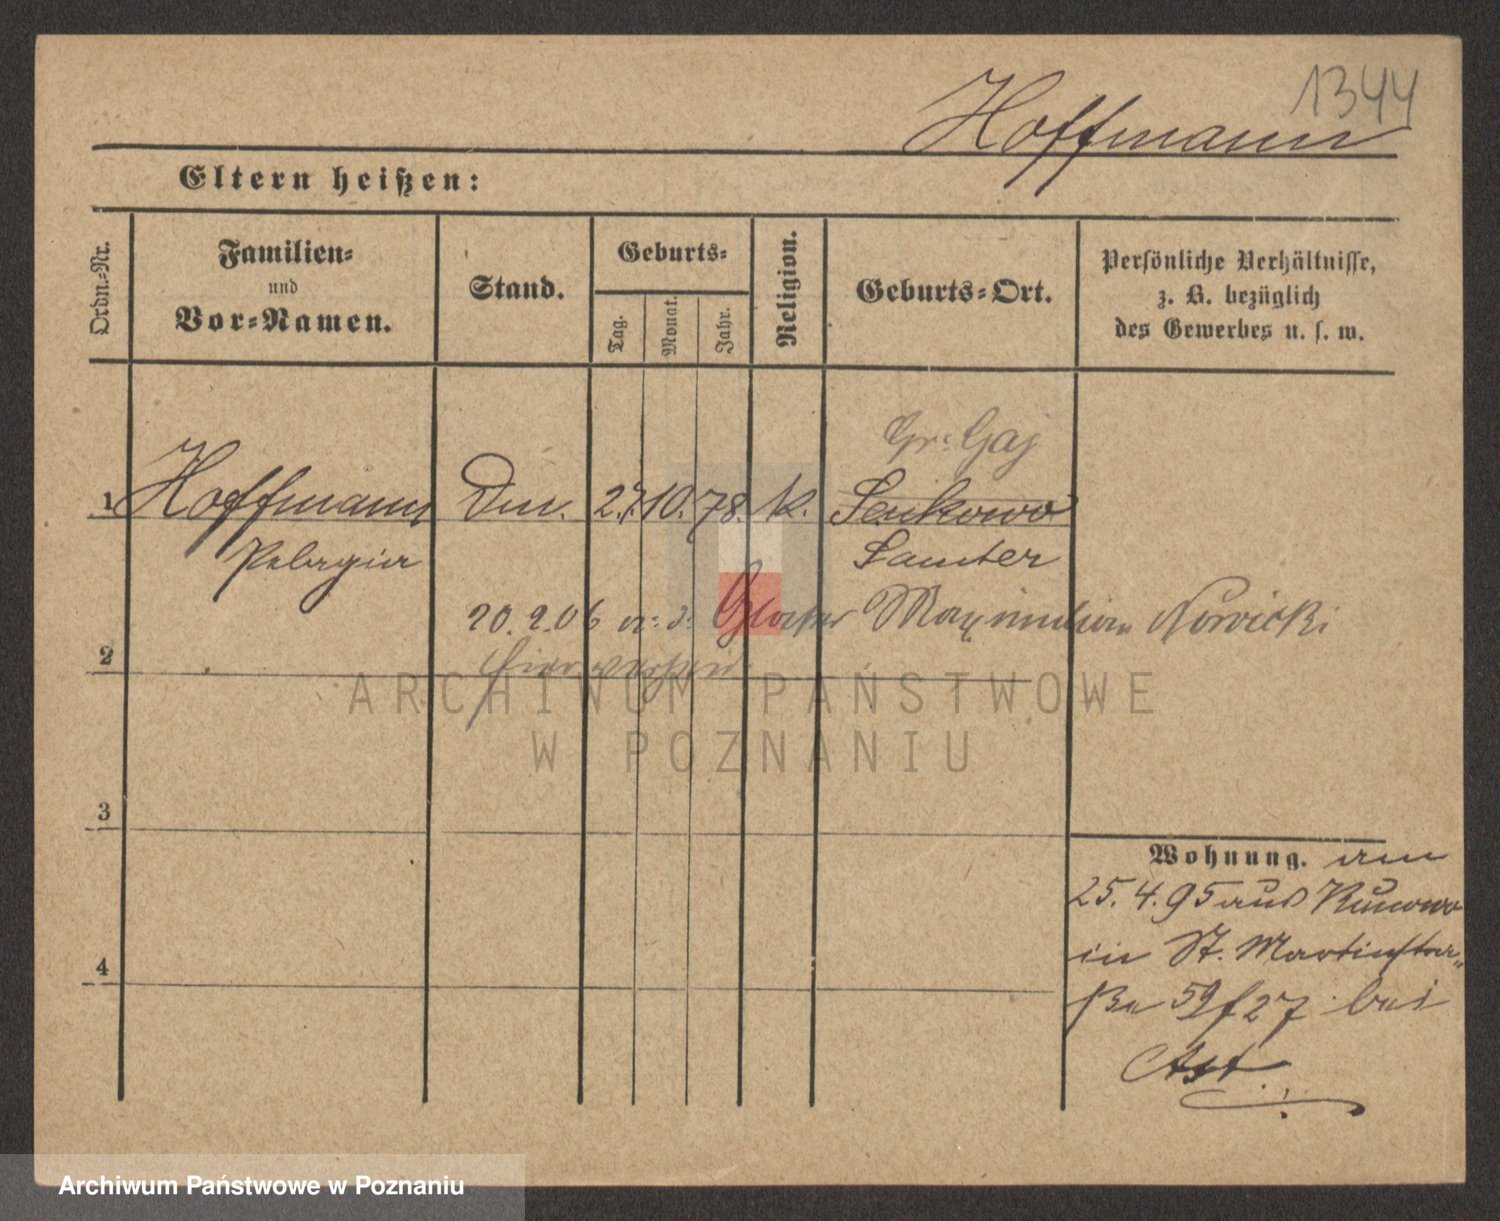 1344
Hoffmann
Eltern heißen:
Ordn.-Nr.
Familien-
und
Vor-Namen.
Stand.
Geburts-
Tag.
Monat.
Jahr.
Religion.
Geburts-Ort.
Persönliche Verhältnisse,
z. B. bezüglich
des Gewerbes u. s. w.
Gr. Gaj
1 Hoffmann Dm. 27. 10. 78. k. Senkowo
Pelagia Samter
20. 2. 06 m. d. Maximilian Nowicki
2 hier
ARCHIWUM PAŃSTWOWE
W POZNANIU
3
Wohnung. am
25. 4. 95 aus Kunowo
in St. Martinstra-
ße 59/27 bei
4
Ast
Archiwum Państwowe w Poznaniu